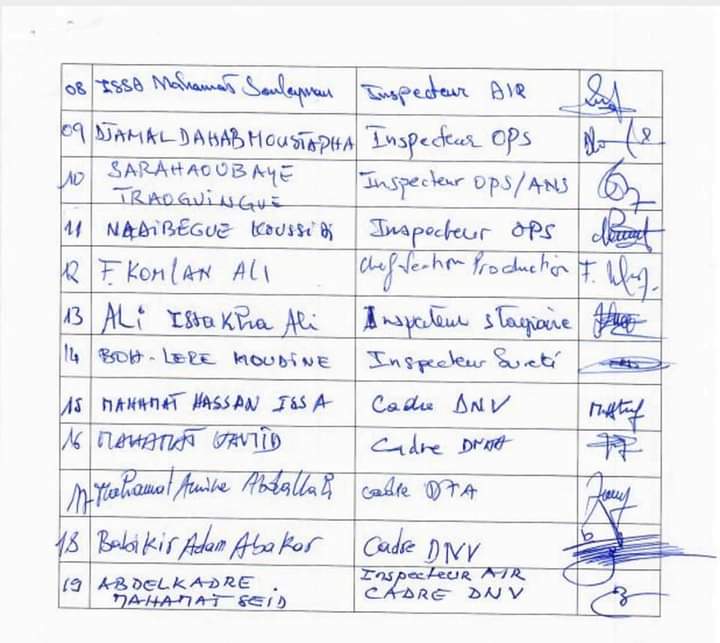 08 ISSA Mahamat Souleyman Inspecteur AIR
09 DJAMAL DAHAB MOUSTAPHA Inspecteur OPS
10 SARAHAOUBAYE TRAOGUINGUE Inspecteur OPS/ANS
11 NADIBEGUE KOUSSIDI Inspecteur OPS
12 F. KOMLAN ALI Chef Section Production
13 ALI ISSAKHA Ali Inspecteur stagiaire
14 BOH-LERE MOUDINE Inspecteur Sureté
15 MAHAMAT HASSAN ISSA Cadre DNV
16 MAHAMAT Cadre
17 Mahamat Amine Abdallah cadre DTA
18 Babikir Adam Abakar Cadre DNV
19 ABDELKADRE MAHAMAT SEID Inspecteur AIR CADRE DNV